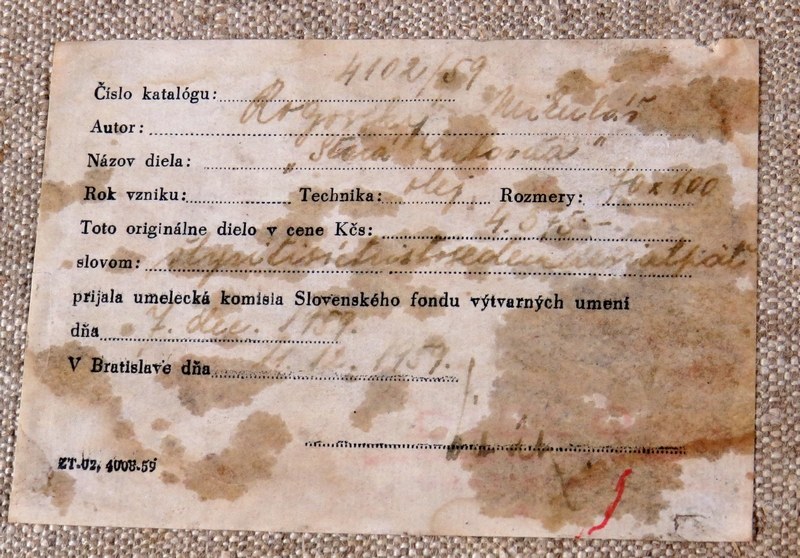 Číslo katalógu: 4102/59
Autor: Rogovský Mikuláš
Názov diela: „Stará Ľubovňa"
Rok vzniku: Technika: olej Rozmery: 70 x 100
Toto originálne dielo v cene Kčs: 4.375.-
slovom: štyritisíctristosedemdesiatpäť
prijala umelecká komisia Slovenského fondu výtvarných umení
dňa 7. dec. 1959.
V Bratislave dňa 12. 1959.
ZT-02, 4008-59